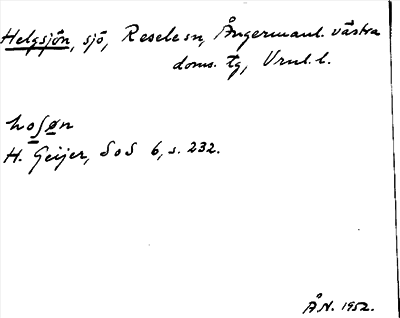 Helgsjön, sjö, Resele sn, Ångermanl. västra
doms. tg, Vrnl. l.
hoʃøn
H. Geijer, SoS 6, s. 232.
ÅN. 1952.